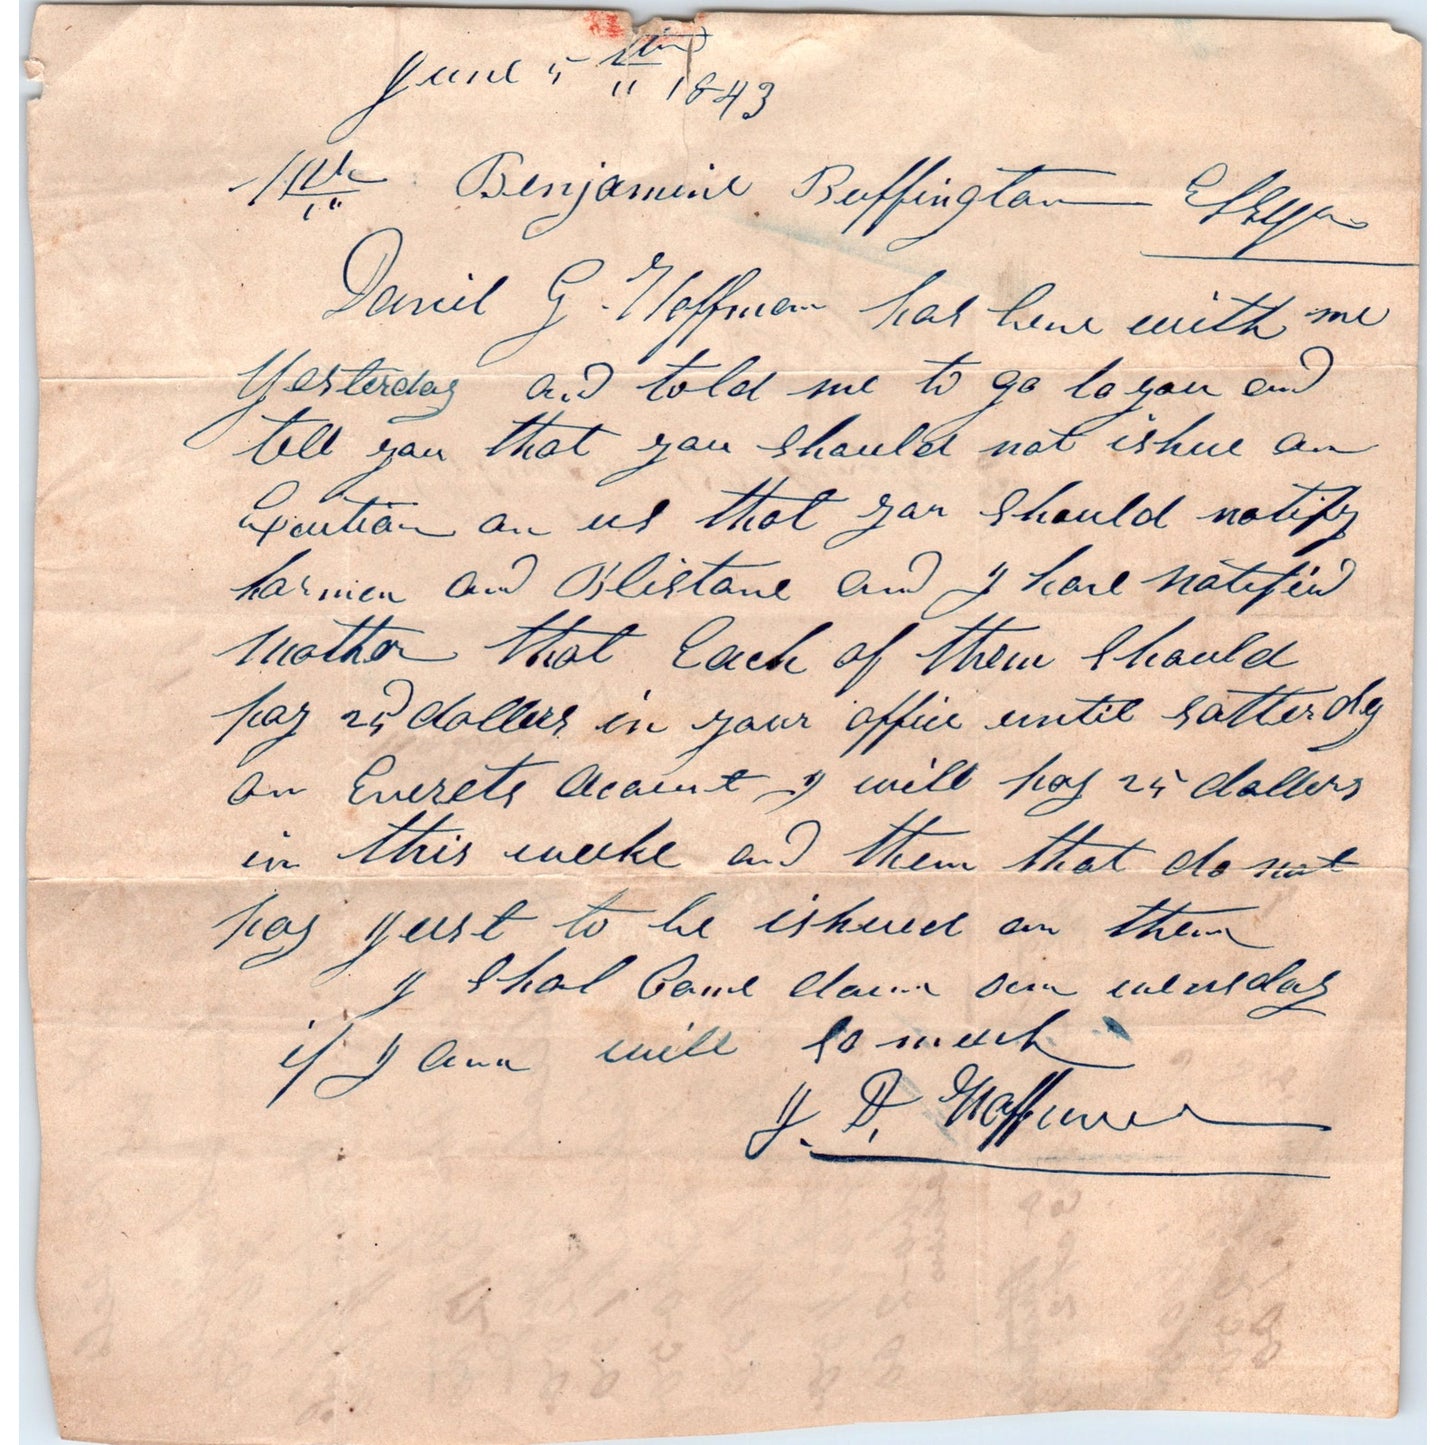 June 5th 1843
Mr Benjamine Buffington Esqr
Daniel G Hoffman has bene with me
Yesterday and told me to go to you and
tell you that you should not ishue an
Execution on us that you should notify
harmen and Blistone and I have notifeid
that Each of them should
pay 25 dollers in your office until satterdy
on Everets account I will pay 25 dollers
in this weeke and them that do not
pay yust to be ishued on them
I shal Come down on wensday
if I am well so much
J. D. Hoffman